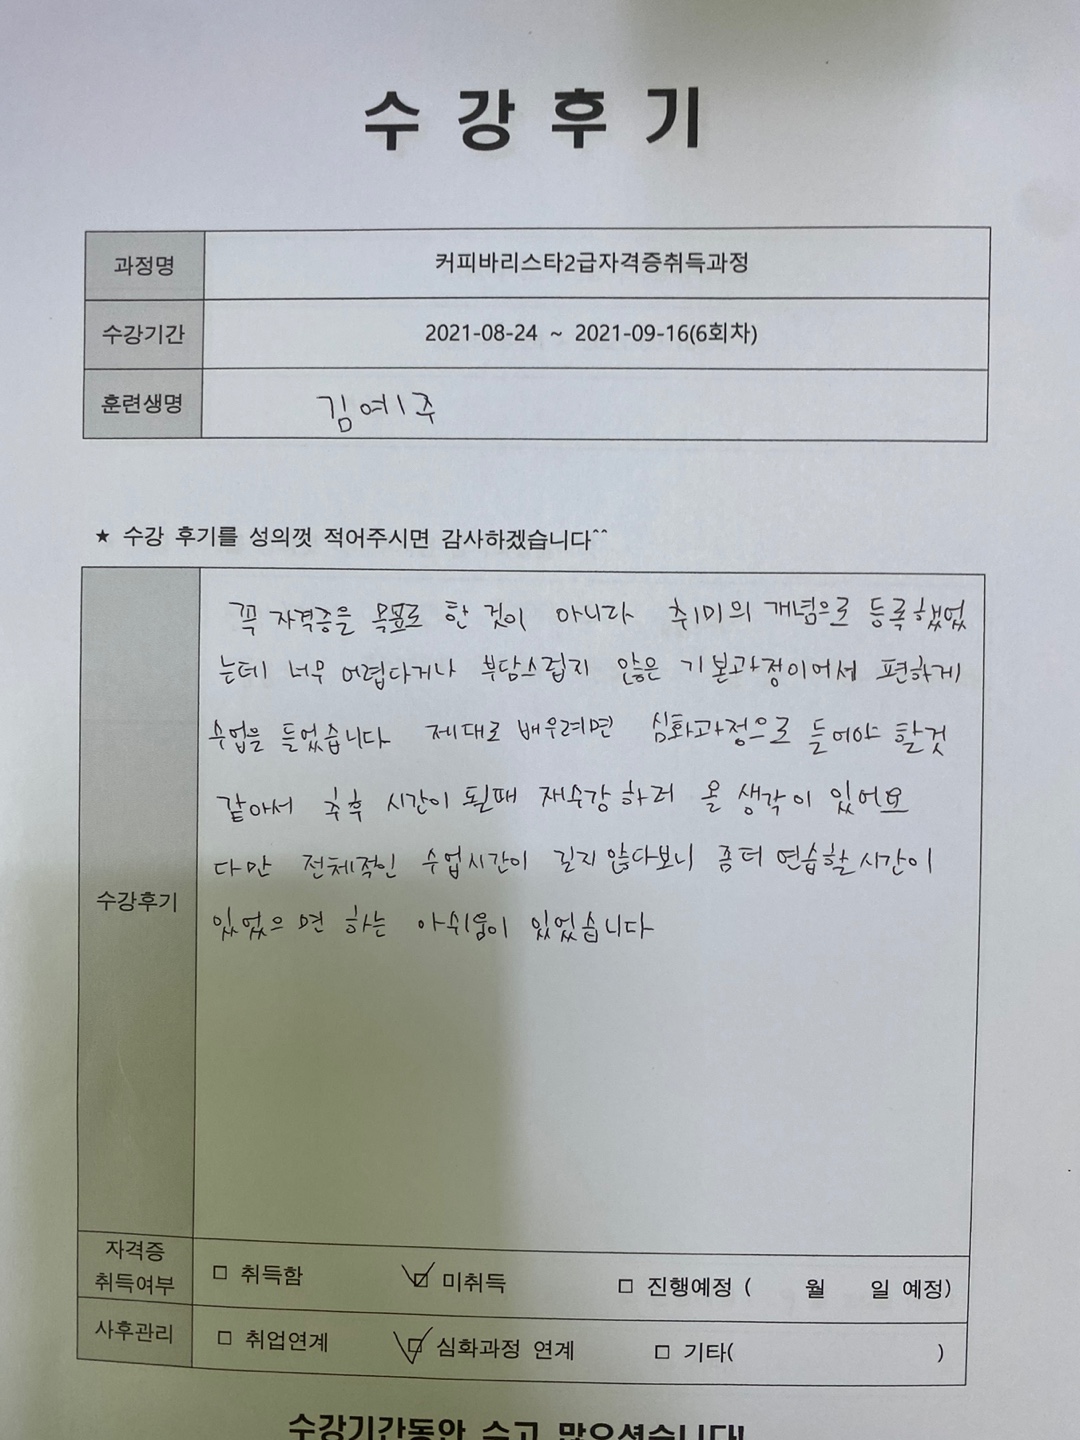 수 강 후 기
과정명 커피바리스타2급자격증취득과정
수강기간 2021-08-24 ~ 2021-09-16(6회차)
훈련생명 김예주
★ 수강 후기를 성의껏 적어주시면 감사하겠습니다^^
꼭 자격증을 목표로 한 것이 아니라 취미의 개념으로 등록했었
는데 너무 어렵다거나 부담스럽지 않은 기본과정이어서 편하게
수업을 들었습니다 제대로 배우려면 심화과정으로 들어야 할것
같아서 추후 시간이 될때 재수강 하러 올 생각이 있어요
다만 전체적인 수업시간이 길지 않다보니 좀더 연습할 시간이
수강후기
있었으면 하는 아쉬움이 있었습니다
자격증
취득여부 □ 취득함 ☑ 미취득 □ 진행예정 ( 월 일 예정)
사후관리 □ 취업연계 ☑ 심화과정 연계 □ 기타( )
수강기간동안 수고 많으셨습니다!